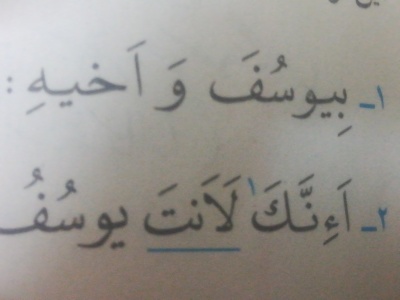 ١ـ بِيوسُفَ وَ اَخيهِ :
٢ـ اَءِنَّكَ ١ لَاَنتَ يوسُفُ